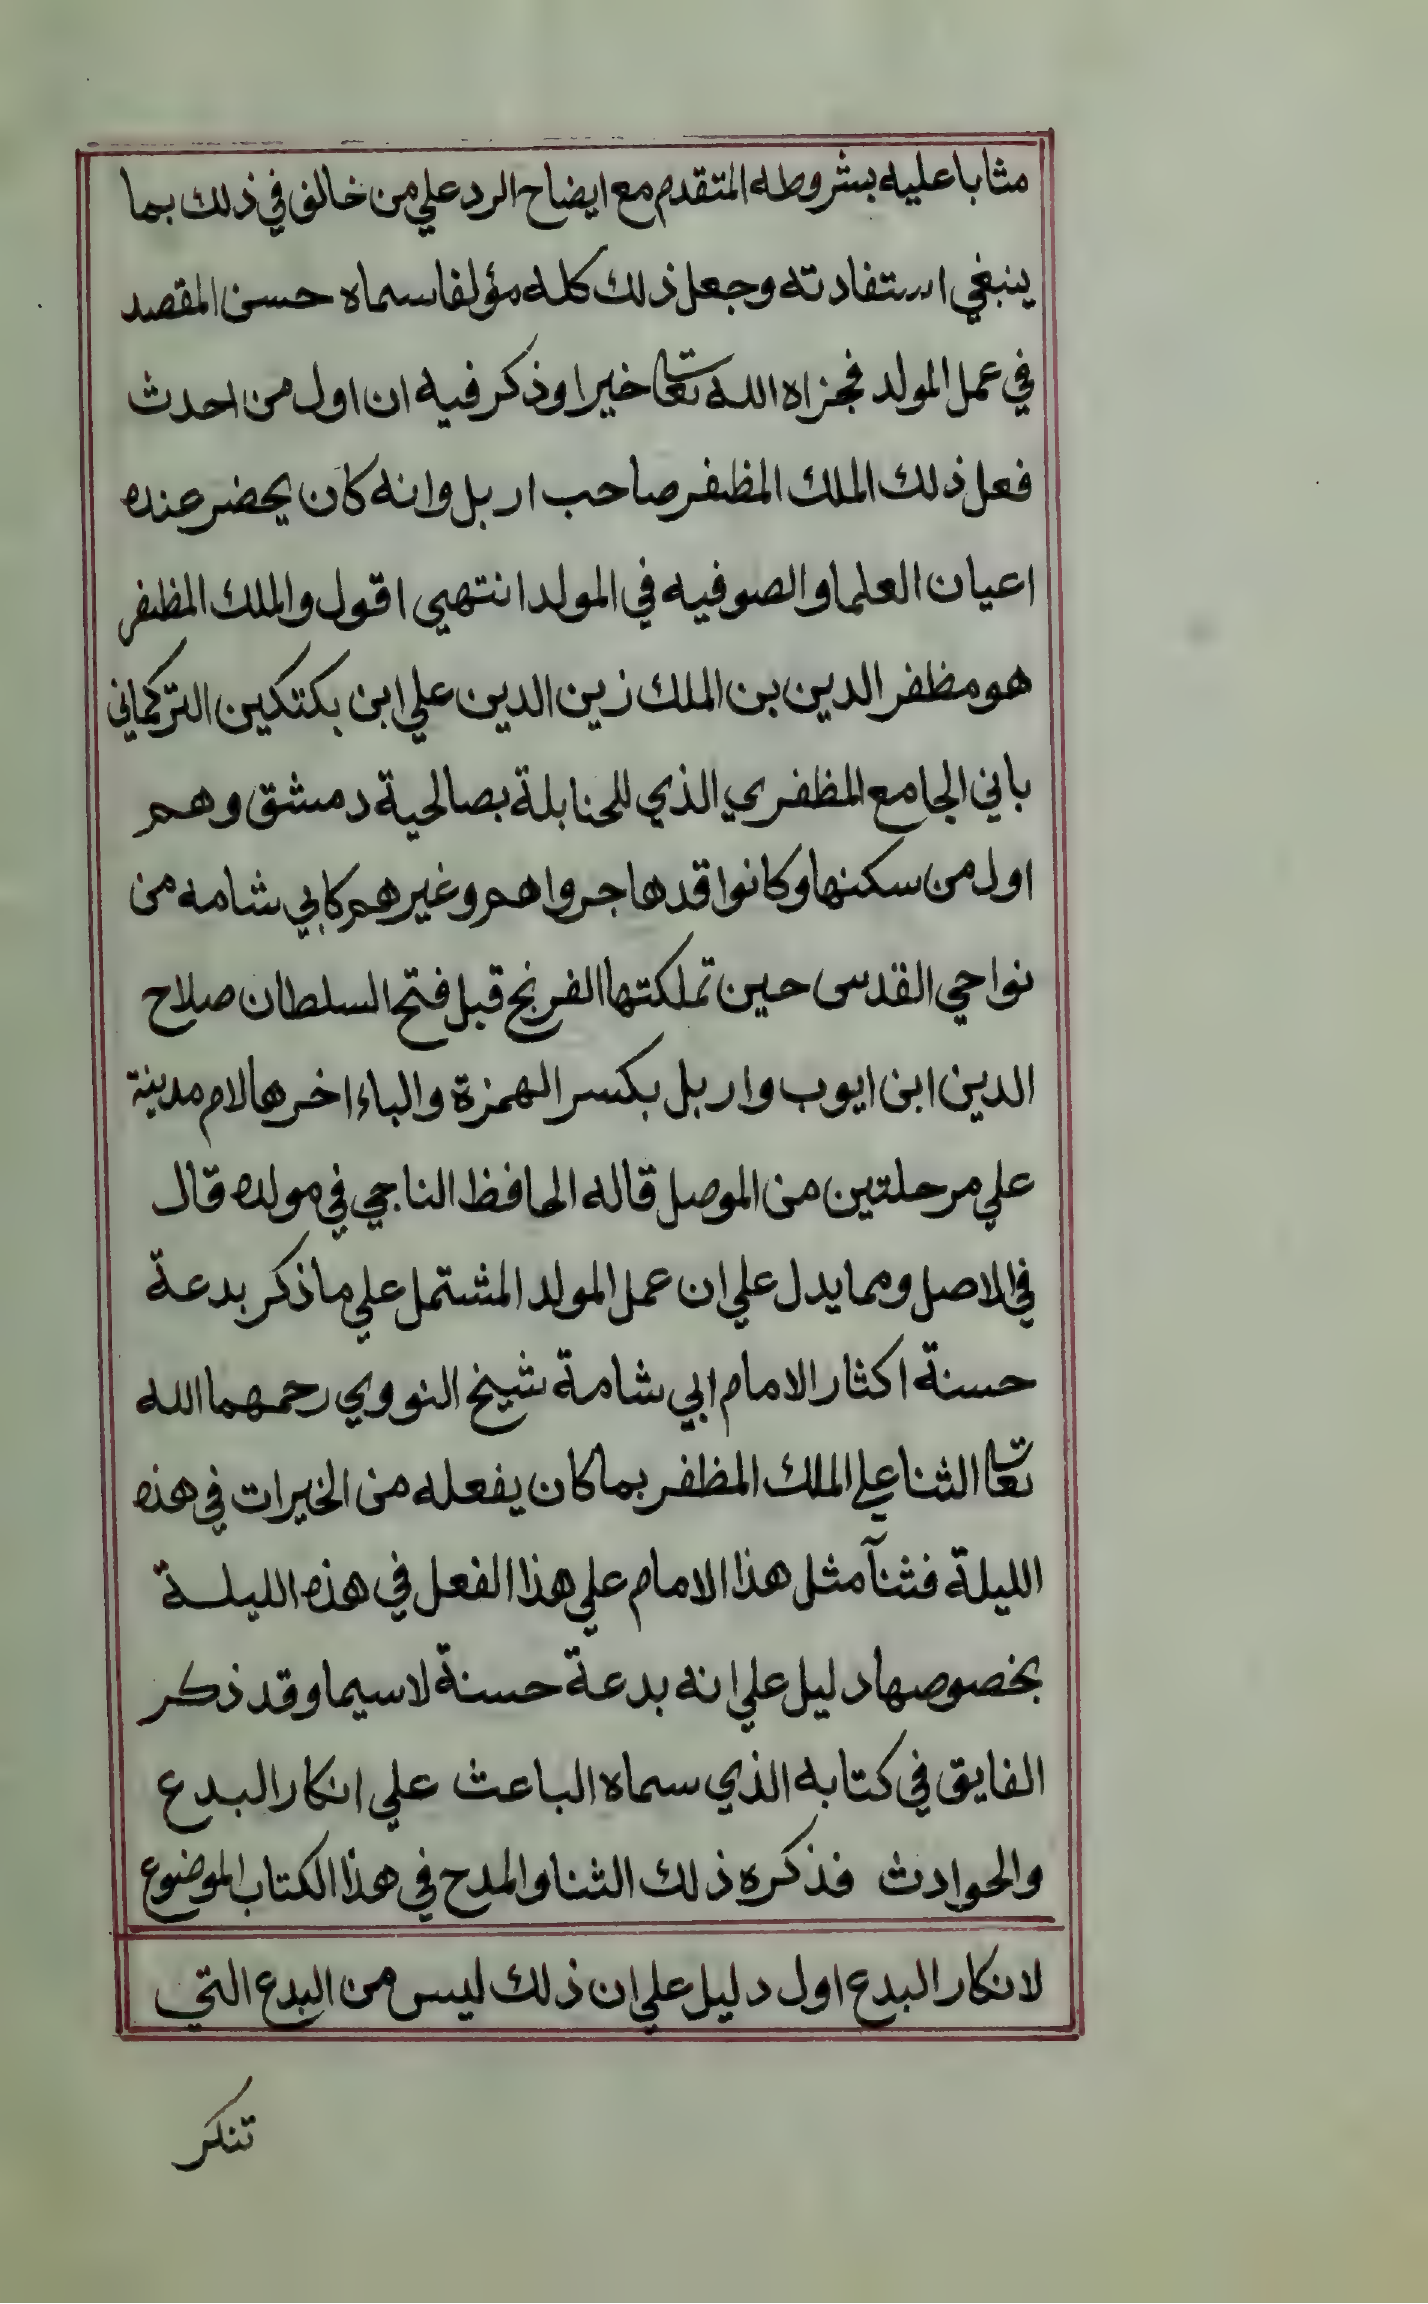 مثابا عليه بشروطه المتقدم مع ايضاح الرد علي من خالف في ذلك بما
ينبغي استفادته وجعل ذلك كله مؤلفا سماه حسن المقصد
في عمل المولد فجزاه الله تعا خيرا وذكر فيه ان اول من احدث
فعل ذلك الملك المظفر صاحب اربل وانه كان يحضر عنده
اعيان العلما والصوفيه في المولد انتهي اقول والملك المظفر
هو مظفر الدين بن الملك زين الدين علي ابن بكتكين التركماني
باني الجامع المظفري الذي للحنابلة بصالحية دمشق وهم
اول من سكنها وكانوا قد هاجروا هم وغيرهم كابي شامه من
نواحي القدس حين تملكتها الفرنج قبل فتح السلطان صلاح
الدين ابن ايوب واربل بكسر الهمزة والباء اخرها لام مدينة
علي مرحلتين من الموصل قاله الحافظ الناجي في مولده قال
في الاصل ومما يدل علي ان عمل المولد المشتمل علي ما ذكر بدعة
حسنة اكثار الامام ابي شامة شيخ النووي رحمهما الله
تعا الثنا علي الملك المظفر بما كان يفعله من الخيرات في هذه
الليلة فثنآ مثل هذا الامام علي هذا الفعل في هذه الليلة
بخصوصها دليل علي انه بدعة حسنة لا سيما وقد ذكر
الفايق في كتابه الذي سماه الباعث علي انكار البدع
والحوادث فذكره ذلك الثنا والمدح في هذا الكتاب الموضوع
لانكار البدع اول دليل علي ان ذلك ليس من البدع التي
تنكر